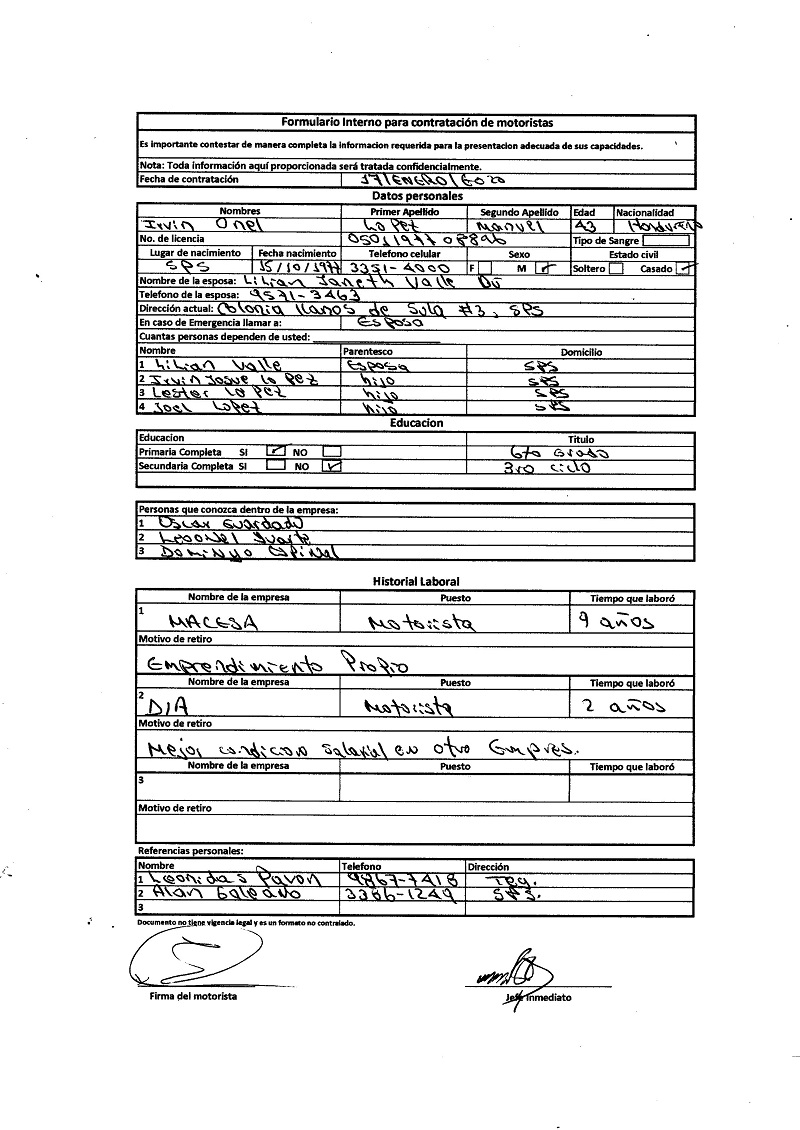 Formulario Interno para contratación de motoristas
Es importante contestar de manera completa la informacion requerida para la presentacion adecuada de sus capacidades.
Nota: Toda información aquí proporcionada será tratada confidencialmente.
Fecha de contratación 17/ENERO/
Datos personales
Nombres Primer Apellido Segundo Apellido Edad Nacionalidad
Irvin Onel LoPez Manuel 43 Hondureño
No. de licencia 0501197708896 Tipo de Sangre
Lugar de nacimiento Fecha nacimiento Telefono celular Sexo Estado civil
SPS 15/10/1977 3351-4000 F M Soltero Casado
Nombre de la esposa: Lilian Janeth Valle
Telefono de la esposa: 9571-3463
Dirección actual: Colonia llanos de Sula #3, SPS
En caso de Emergencia llamar a: Esposa
Cuantas personas dependen de usted:
Nombre Parentesco Domicilio
1 Lilian Valle Esposa SPS
2 Irvin Josue LoPez hijo SPS
3 Lester LoPez hijo SPS
4 Joel LoPez hijo SPS
Educacion
Educacion Titulo
Primaria Completa SI NO 6to Grado
Secundaria Completa SI NO 3ro ciclo
Personas que conozca dentro de la empresa:
1 Oscar Guardado
2 Leonel
3 Domingo Espinal
Historial Laboral
Nombre de la empresa Puesto Tiempo que laboró
1 MACESA Motorista 9 años
Motivo de retiro
Emprendimiento Propio
Nombre de la empresa Puesto Tiempo que laboró
2 DIA Motorista 2 años
Motivo de retiro
Mejor condicion Salarial en otro Empres.
Nombre de la empresa Puesto Tiempo que laboró
3
Motivo de retiro
Referencias personales:
Nombre Telefono Dirección
1 Leonidas Pavon 9867-7418 Teg.
2 Alan Galeano 3386-1249 SPS.
3
Documento no tiene vigencia legal y es un formato no controlado.
Firma del motorista Jefe Inmediato